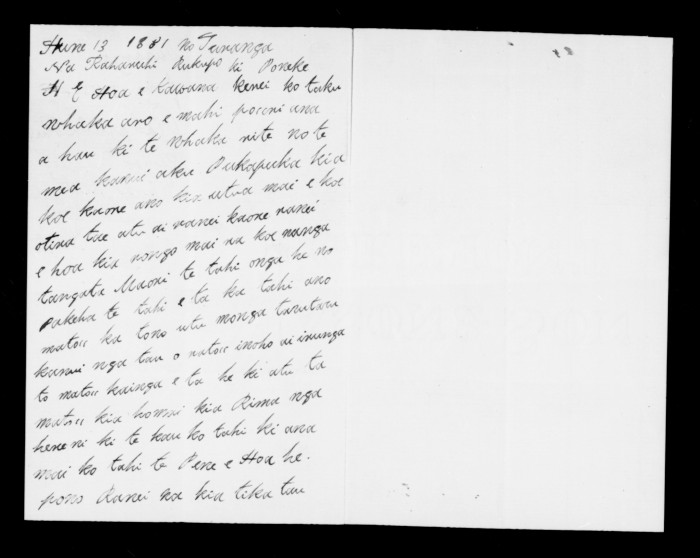 Hune 13 1881 No Turanga
Na Raharuhi Rukupo ki Poneke
H E Hoa e Kawana kenei ko taku
whaka aro e mahi poconi ana
a hau ki te whaka rite no te
mea kanui aku Pukapuka kia
koe kaore ano kia utua mai e koe
otira tae atu ai ranei kaore ranei
e hoa kia rongo mai ra koe nanga
tangata Maori te tahi onga he no
pakeha te tahi e ta ka tahi ano
matou ka tono utu monga tarutaru
kanui nga tau o ratou inoho ai irunga
to matou kainga e ta he ki atu ta
matou kia homai kia Rima nga
hereni ki te kau ko tahi ki ana
mai ko tahi te Pene e Hoa he
pono Ranei ka kia tika tau